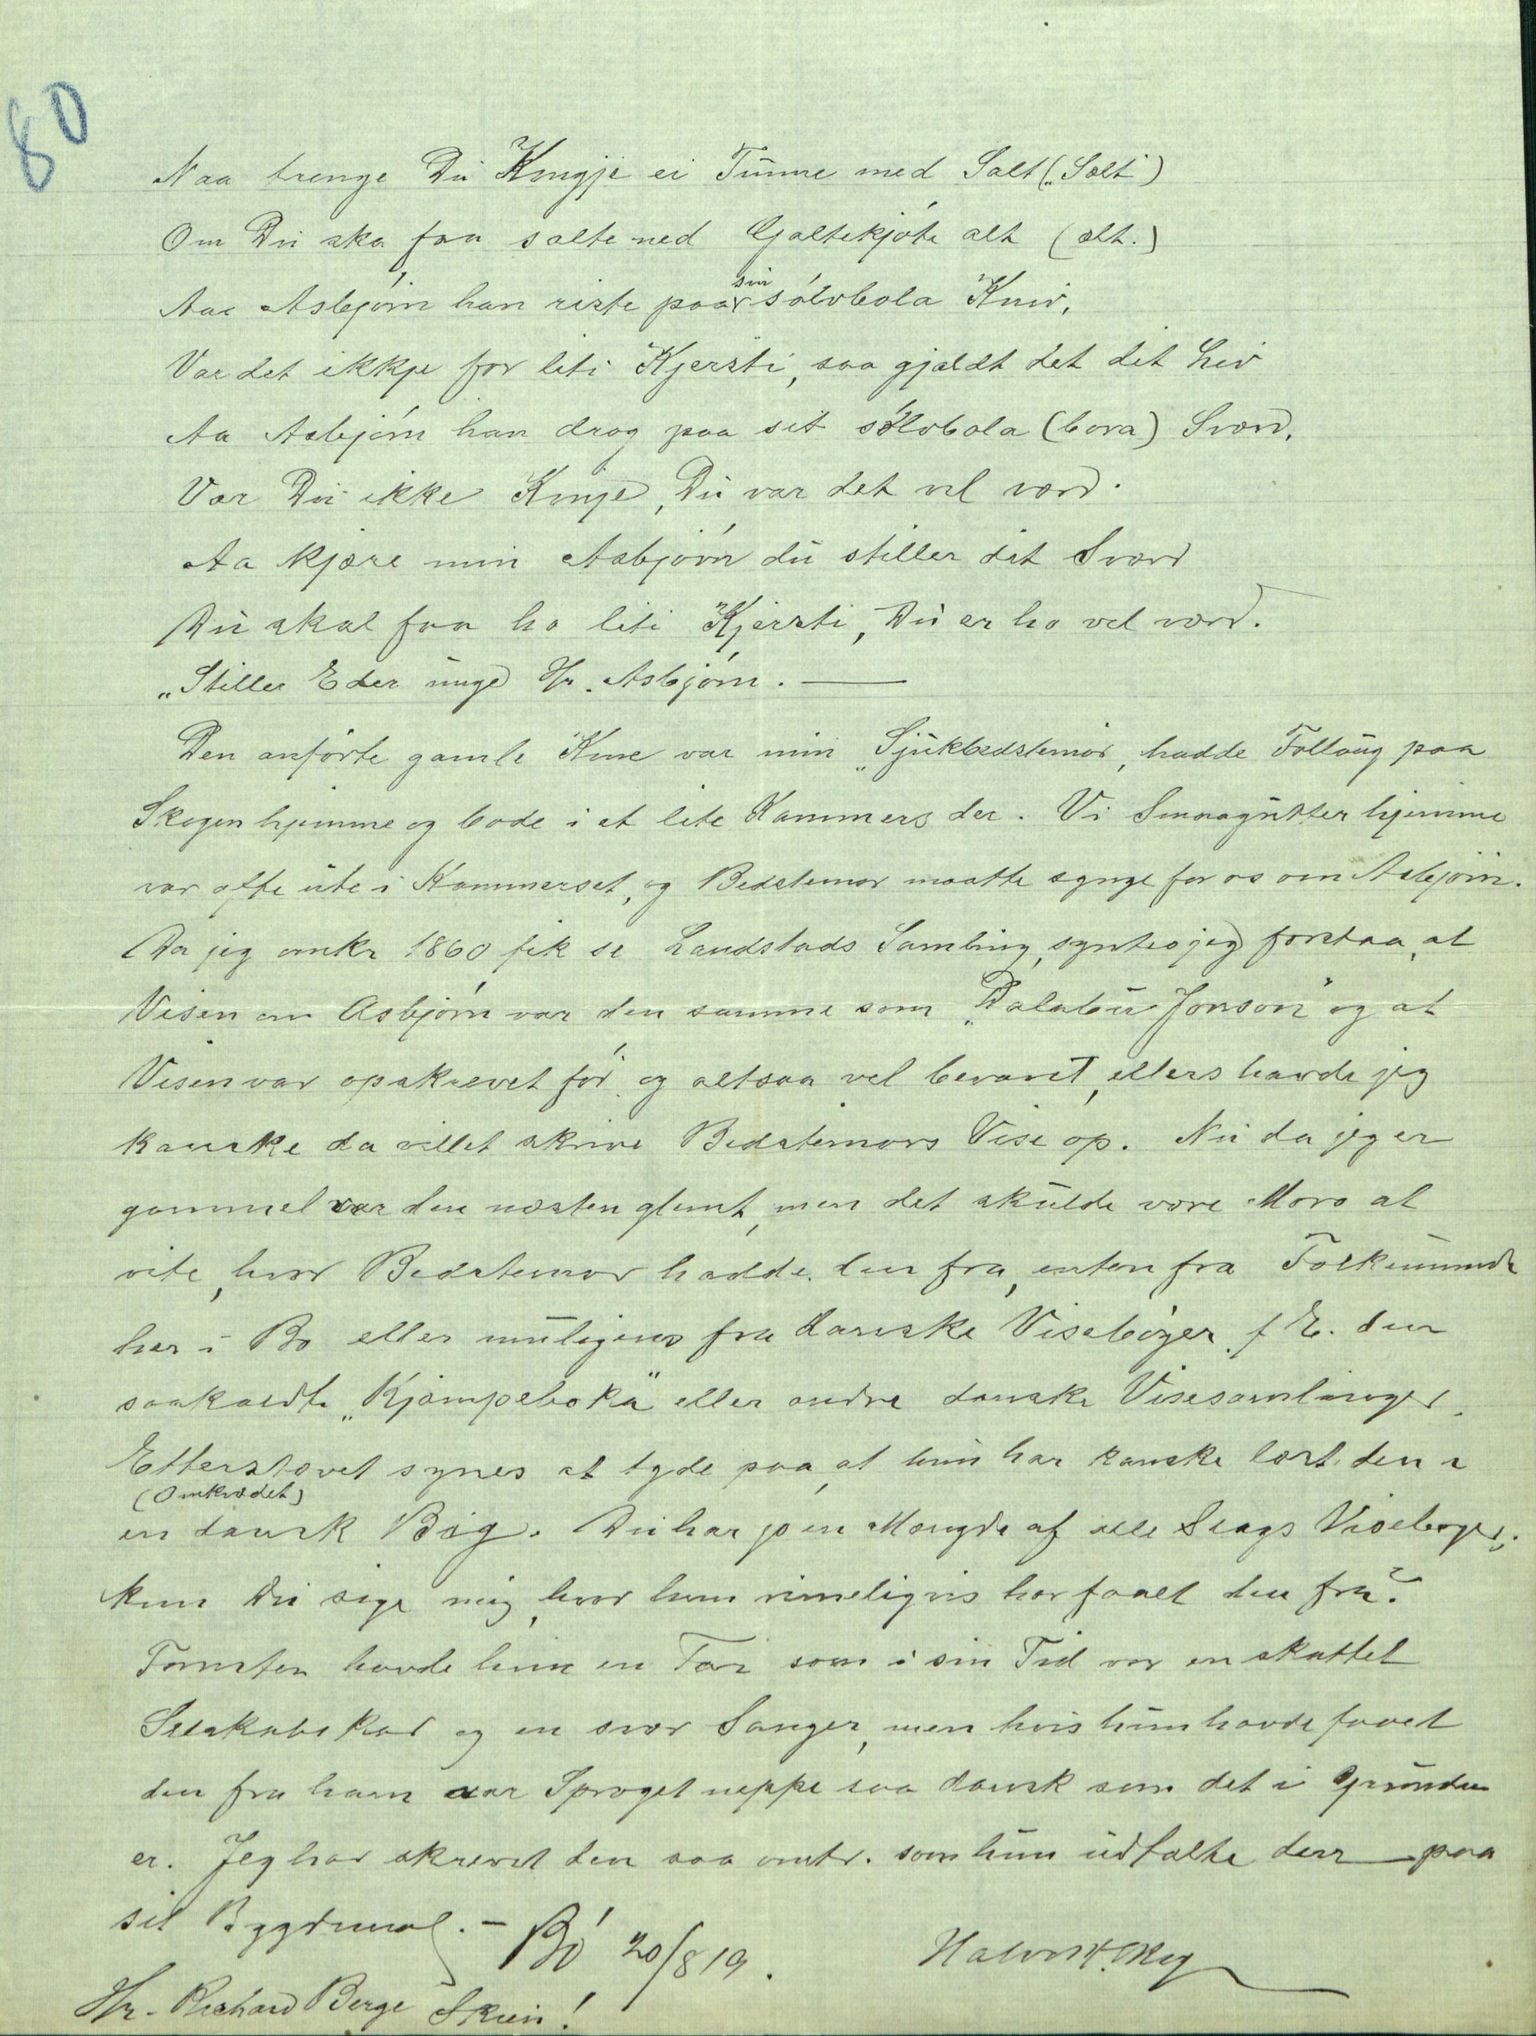 80
Naa trenge Du Kongje ei Tunne med Salt („Sält”)
Om Du ska faa salte ned Galtekjöte alt (ält.)
Aa Asbjörn han riste paa sin sölvbola Kniv,
Var det ikkje for liti Kjersti, saa gjældt det dit Liv
Aa Asbjörn han drog paa sit sölvbola (bora) Sværd,
Var Du ikke Konje, Du var det vel værd.
Aa kjære min Asbjörn du stiller dit Sværd
Du skal faa ho liti Kjersti, Du er ho vel værd.
„Stiller Eder unge Hr. Asbjörn. —
Den anförte gamle Kone var min „Sjukbedstemor, hadde Follaug paa
Skogen hjemme og bode i et lite Kammers der. Vi Smaagutter hjemme
var ofte ute i Kammerset, og Bedstemor maatte synge for os om Asbjörn.
Da jeg omkr 1860 fik se Landstads Samling, syntes jeg forstaa, at
Visen om Asbjörn var den samme som „Dalebu Jonson” og at
Visen var opskrevet för og altsaa vel bevaret, ellers havde jeg
kanske da villet skrive Bedstemors Vise op. Nu da jeg er
gammel var den næsten glemt, men det skulde være Moro at
vite, hvor Bedstemor hadde den fra, enten fra Folkemunde
her i Bö eller muligens fra danske Viseböger f E. den
saakaldte „Kjæmpeboka” eller andre danske Visesamlinger.
Etterstævet synes at tyde paa, at hun har kanske lært den i
(Omkvædet)
en dansk Bog. Du har jo en Mengde af alle Slags Viseböger,
kan Du sige mig, hvor hun rimeligvis har faaet den fra?
Tomsten havde hun en Far som i sin Tid var en skattet
Selskabskar og en svær Sanger, men hvis hun havde faaet
den fra ham var Sproget neppe saa dansk som det i Grunden
er. Jeg har skrevet den saa omtr. som hun udtalte den — paa
sit Bygdemaal. — Bö 20/8 19.
Halvor H.
Hr. Richard Berge Skien!